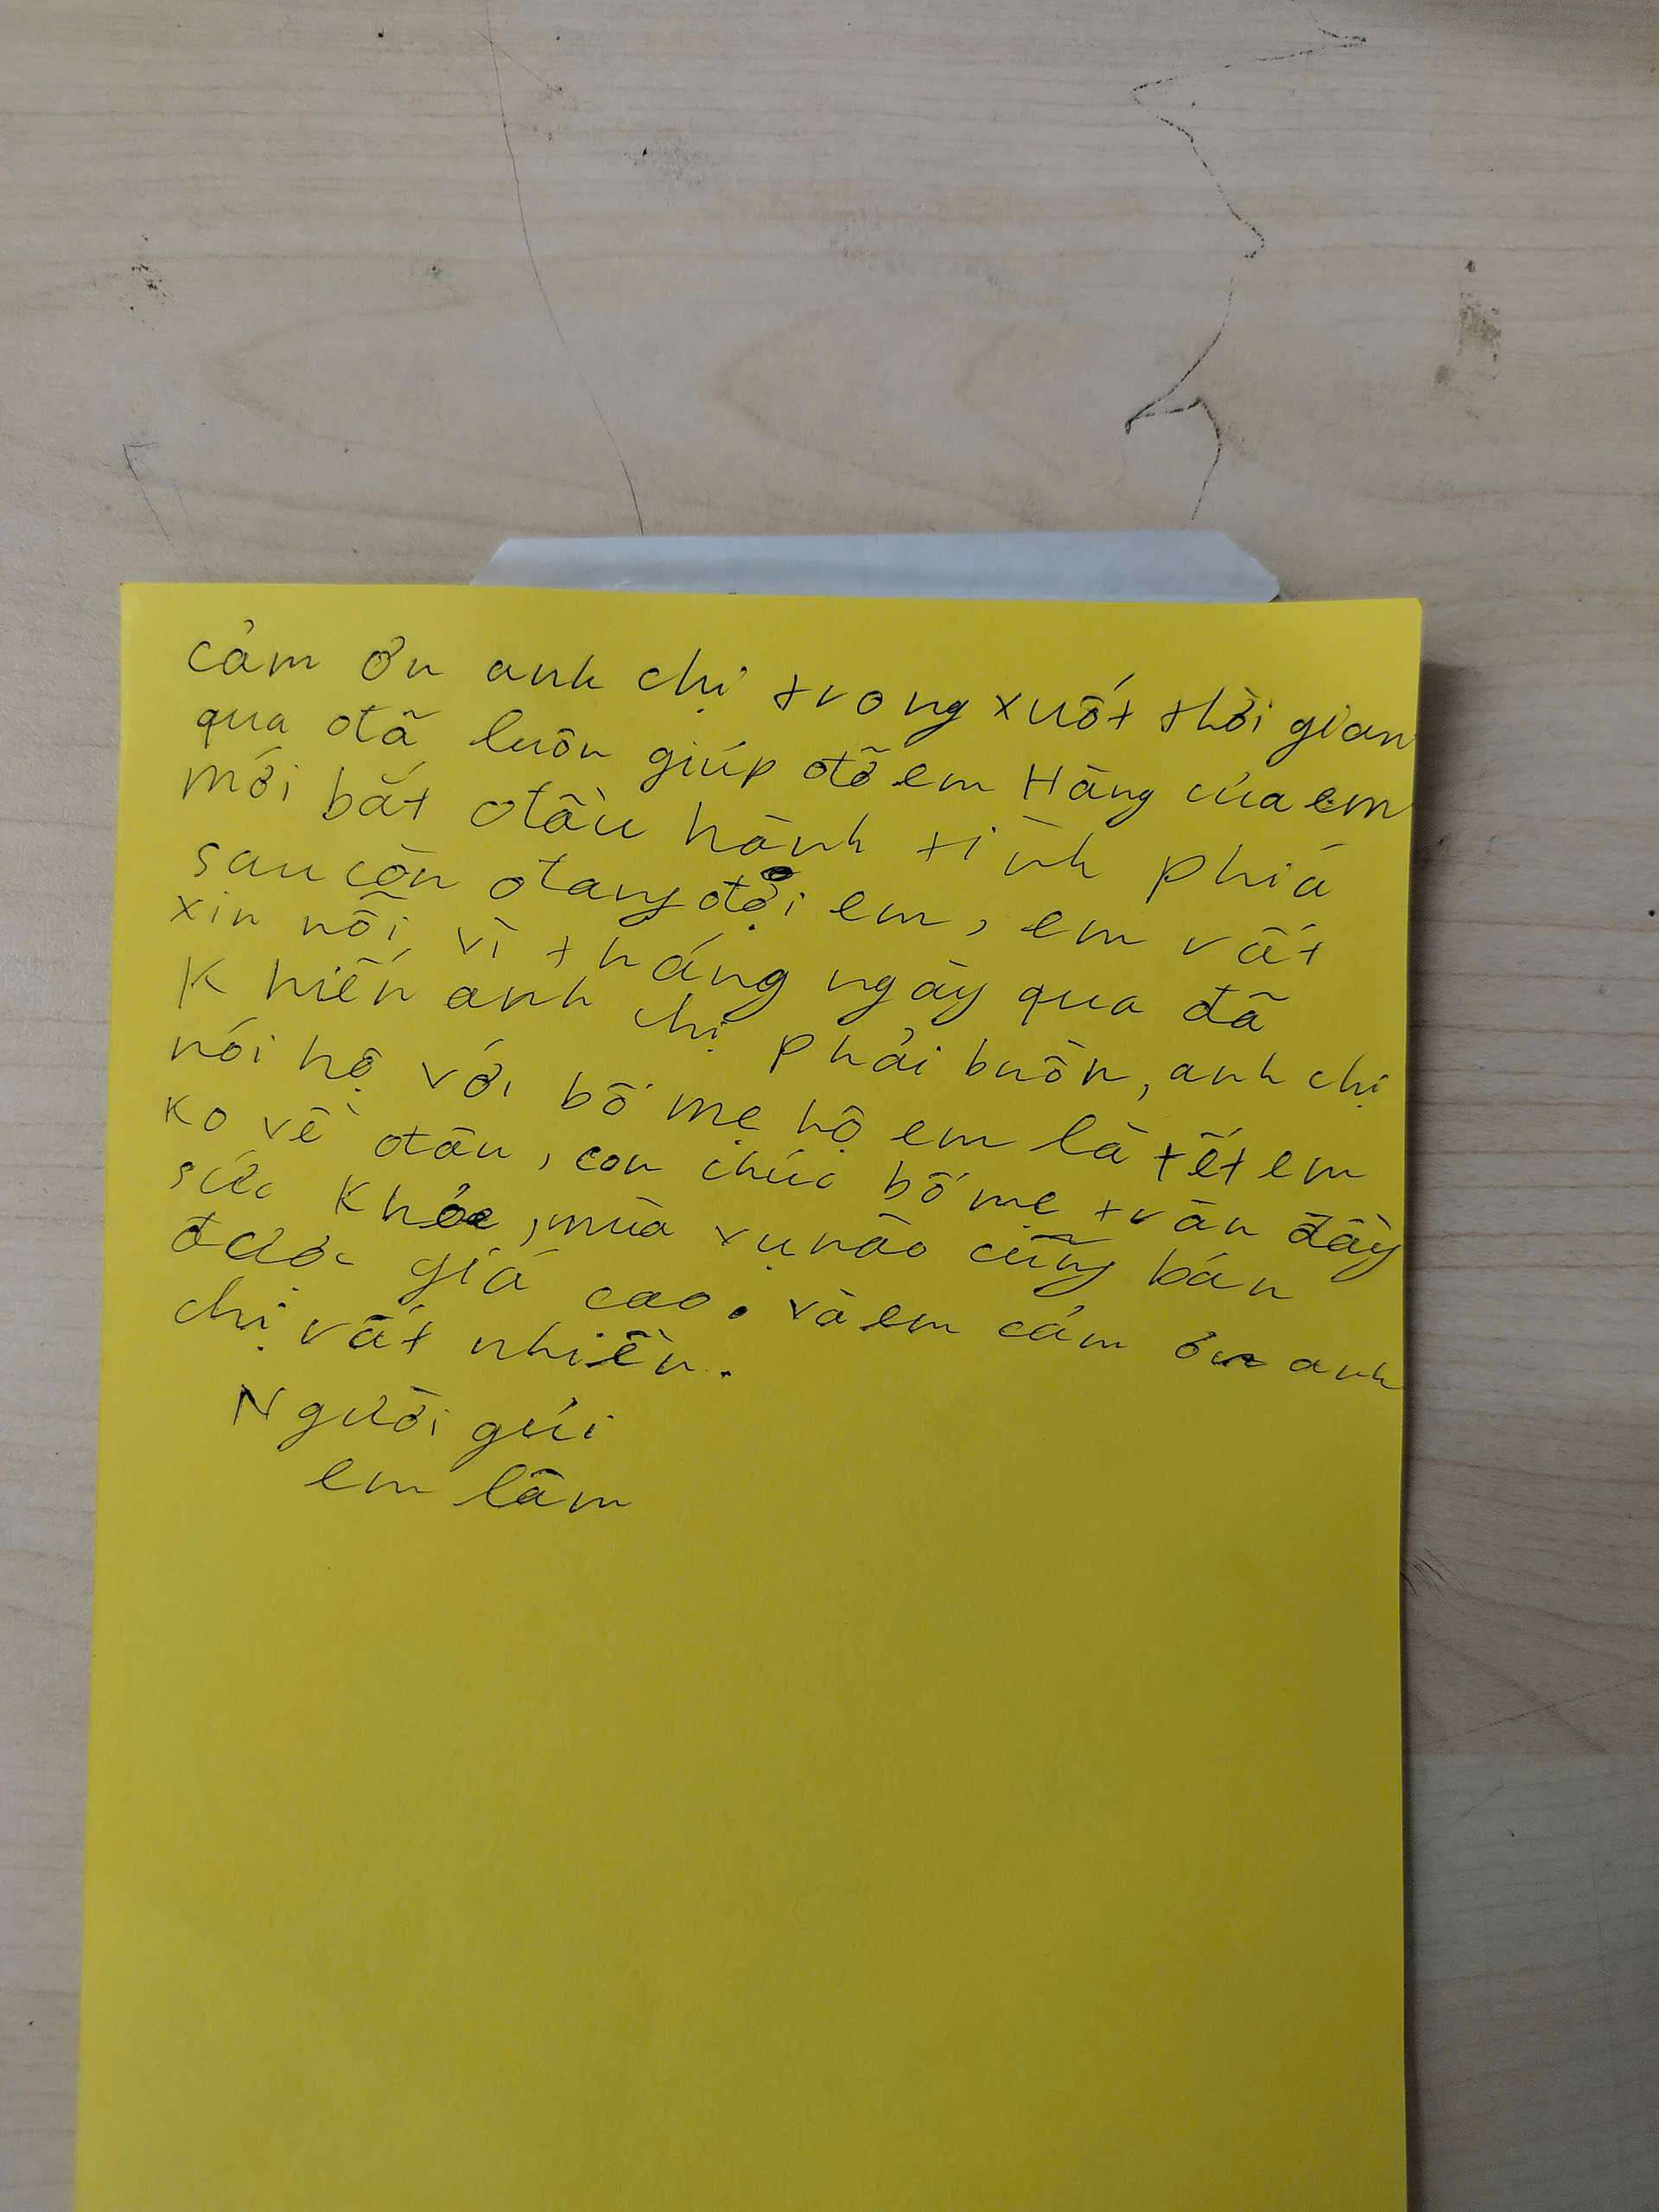 cảm ơn anh chị trong xuốt thời gian
qua đã luôn giúp đỡ em Hãng của em
mới bắt đầu hành tình phiá
sau còn đang đợi em, em rất
xin nỗi vì tháng ngày qua đã
Khiến anh chị phải buồn, anh chị
nói hộ với bố mẹ hộ em là tết em
Ko về đâu, con chúc bố mẹ tràn đầy
sức Khỏe, mùa vụ nào cũng bán
được giá cao. và em cảm ơn anh
chị rất nhiền.
Người gửi
em lâm